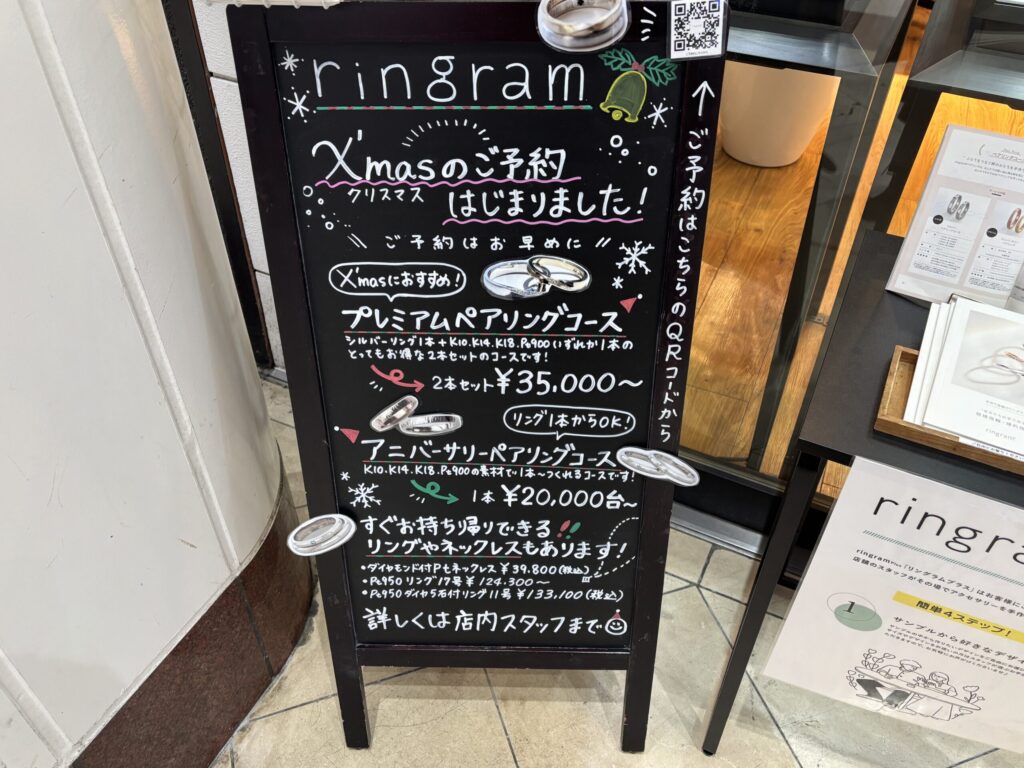 ringram
X'masのご予約
クリスマス
はじまりました!
ご予約はお早めに
X'masにおすすめ!
プレミアムペアリングコース
シルバーリング1本+K10.K14.K18.Pt900いずれか1本の
とってもお得な2本セットのコースです!
2本セット¥35,000~
リング1本からOK!
アニバーサリーペアリングコース
K10.K14.K18.Pt900の素材で1本~つくれるコースです!
1本¥20,000台~
すぐお持ち帰りできる!!
リングやネックレスもあります!
•ダイヤモンド付Ptネックレス¥39.800(税込)
•Pt950リング17号¥124.300~
•Pt950ダイヤ5石付リング11号¥133,100(税込)
詳しくは店内スタッフまで
↑ご予約はこちらのQRコードから
ペアリングコー
ringram
ringra
ringram Plus「リングラムプラス」はお客様に
店舗のスタッフがその場でアクセサリーを手作
簡単4ステップ!
1
サンプルから好きなデザイ